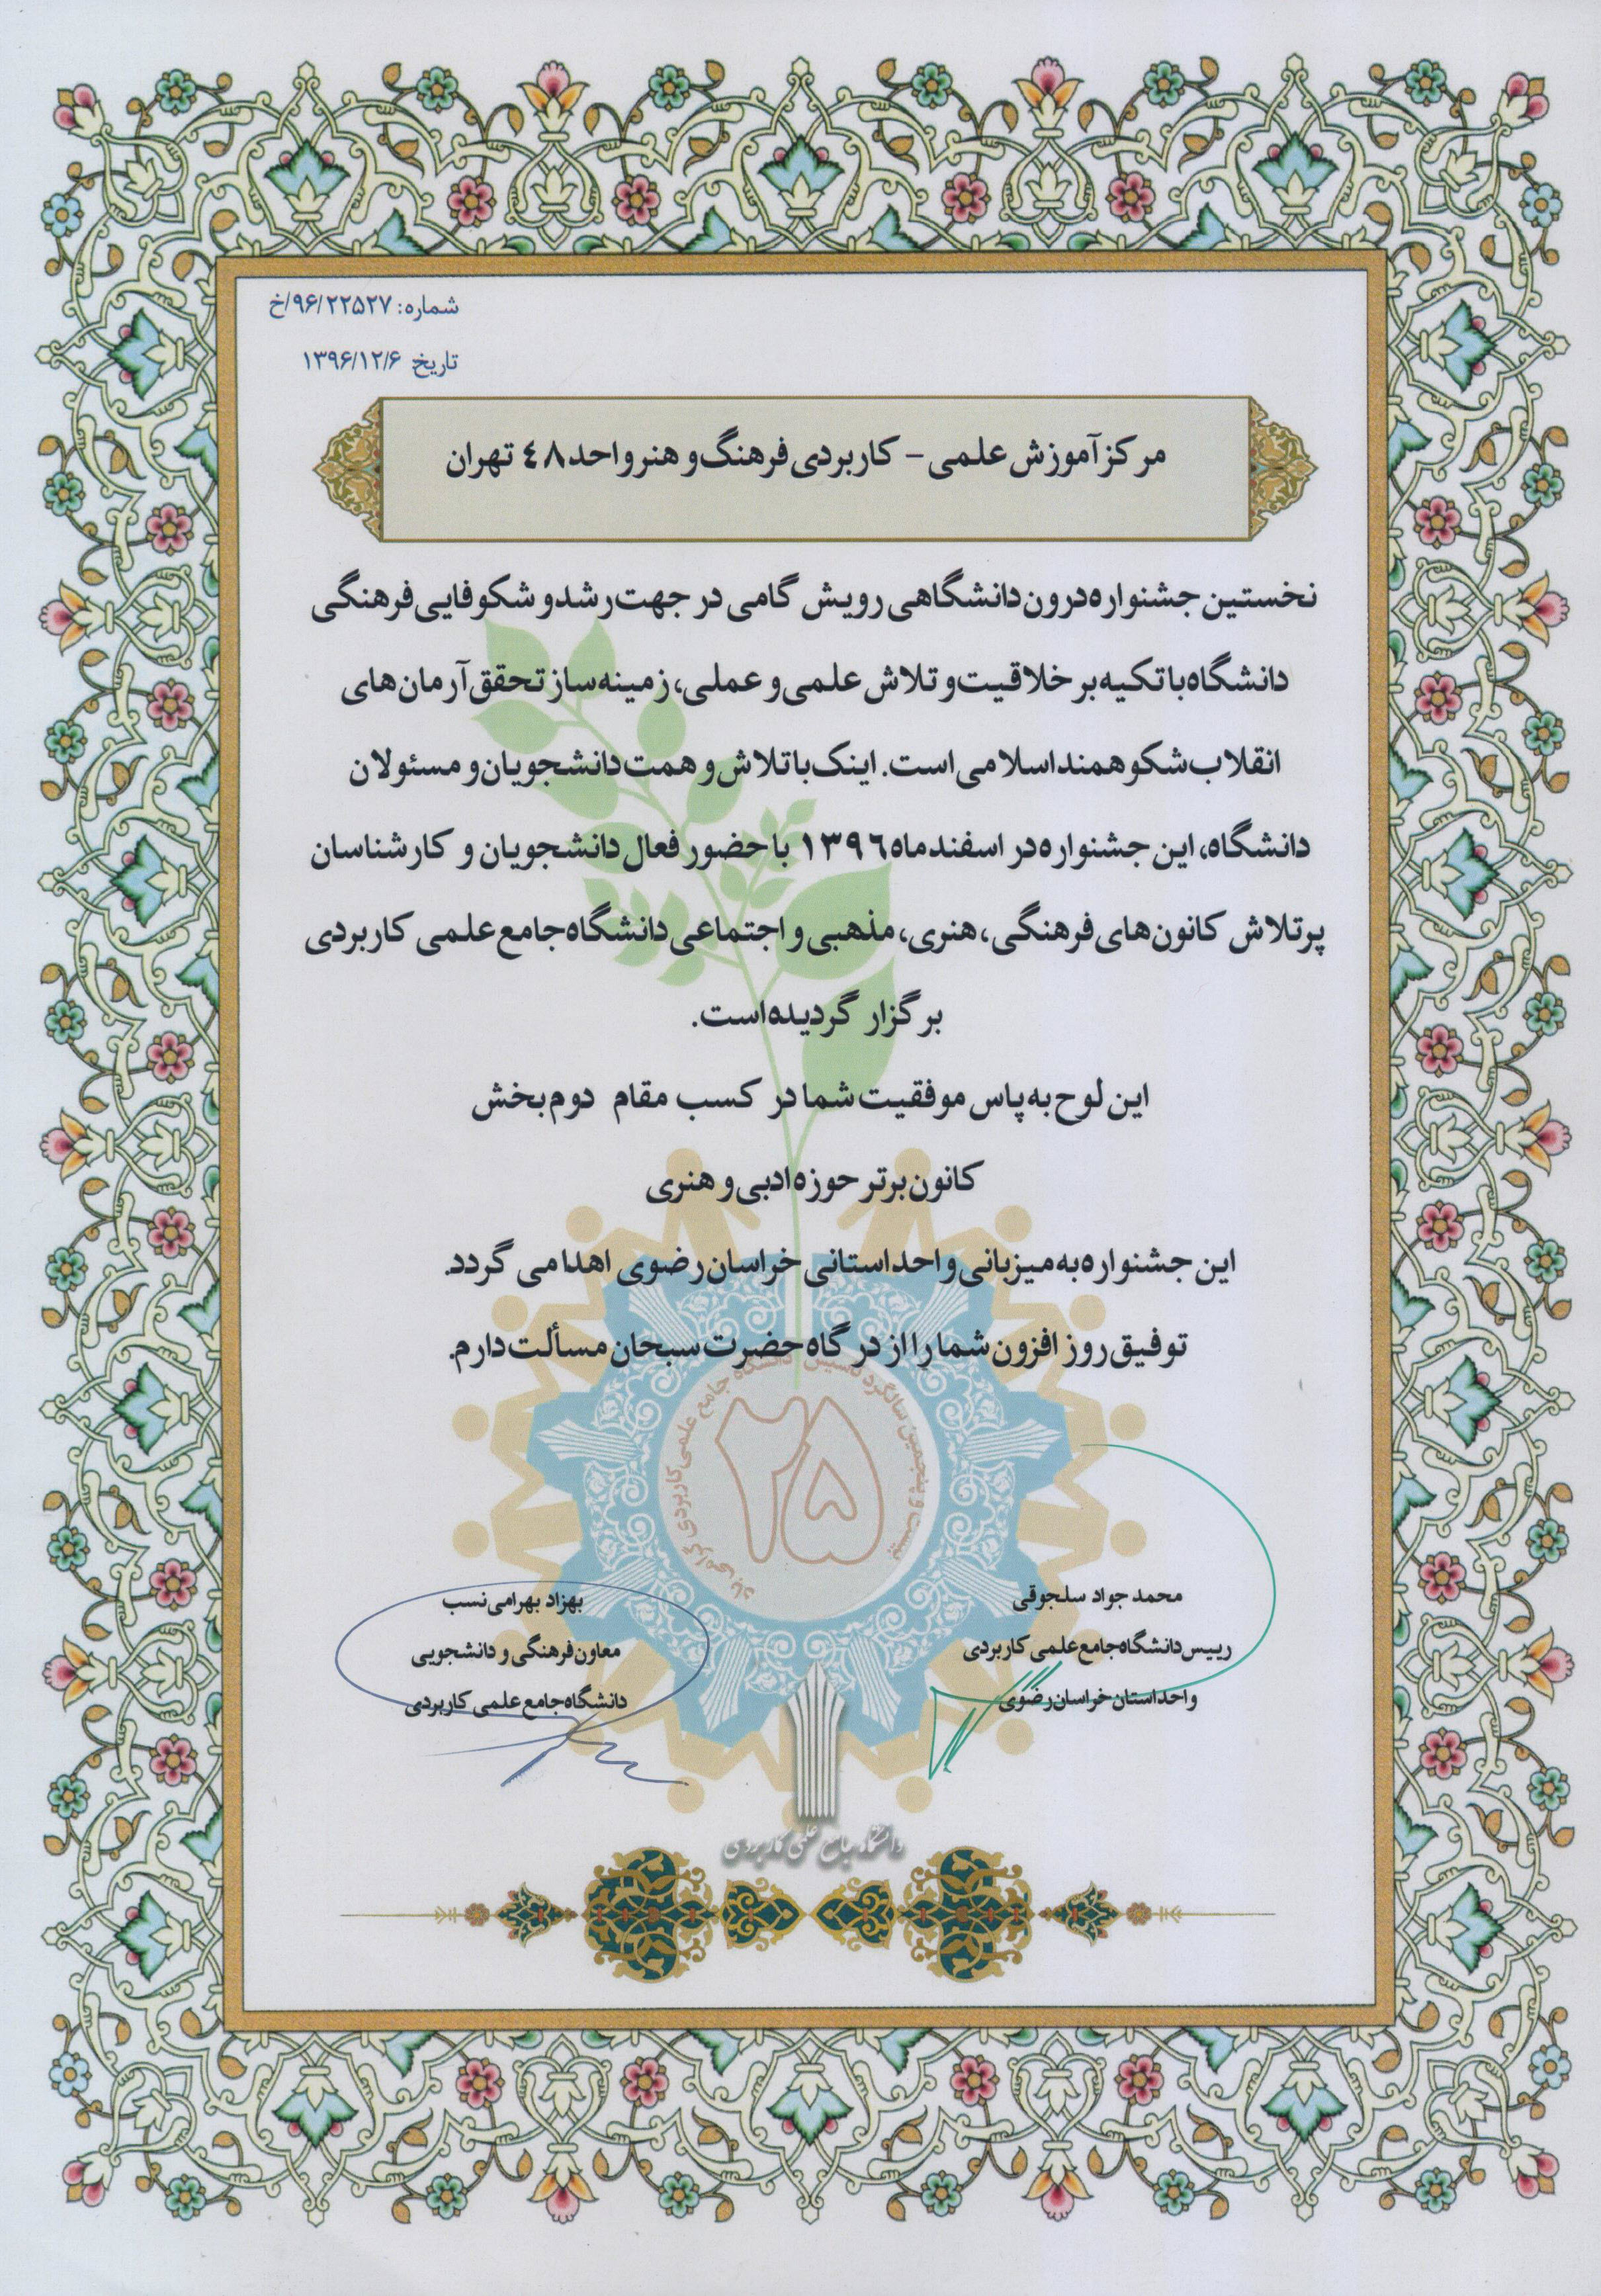 شماره: ۹۶/۲۲۵۲۷/خ
تاریخ ۱۳۹۶/۱۲/۶
مرکز آموزش علمی - کاربردی فرهنگ و هنر واحد ٤٨ تهران
نخستین جشنواره درون دانشگاهی رویش گامی در جهت رشد و شکوفایی فرهنگی
دانشگاه با تکیه بر خلاقیت و تلاش علمی و عملی، زمینه ساز تحقق آرمان های
انقلاب شکوهمند اسلامی است. اینک با تلاش و همت دانشجویان و مسئولان
دانشگاه، این جشنواره در اسفند ماه ۱۳۹٦ با حضور فعال دانشجویان و کارشناسان
پرتلاش کانون های فرهنگی، هنری، مذهبی و اجتماعی دانشگاه جامع علمی کاربردی
برگزار گردیده است.
این لوح به پاس موفقیت شما در کسب مقام دوم بخش
کانون برتر حوزه ادبی و هنری
این جشنواره به میزبانی واحد استانی خراسان رضوی اهدا می گردد.
توفیق روز افزون شما را از درگاه حضرت سبحان مسألت دارم.
بیست و پنجمین سالگرد تاسیس دانشگاه جامع علمی کاربردی گرامی باد
۲۵
محمد جواد سلجوقی
رییس دانشگاه جامع علمی کاربردی
واحد استان خراسان رضوی
بهزاد بهرامی نسب
معاون فرهنگی و دانشجویی
دانشگاه جامع علمی کاربردی
دانشگاه جامع علمی کاربردی